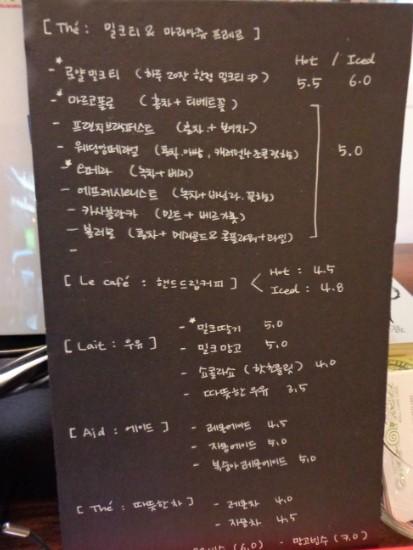 [ Thé : 밀크티 & 마리아쥬 프레르 ]
Hot / Iced
* - 로얄밀크티 (하루 20잔 한정 밀크티 :D) 5.5 6.0
* - 마르코폴로 (홍차 + 티베트꽃)
- 프렌치브랙퍼스트 (홍차 + 보이차)
- 웨딩임페리얼 (홍차, 아쌈, 캐러멜 + 초콜릿향) 5.0
* - 에페라 (녹차 + 베리)
- 에프레시에니스트 (녹차 + 바닐라, 꽃향)
- 카사블랑카 (민트 + 베르가못)
- 볼러몽 (홍차 + 메리골드 & 콘플라워 + 라임)
-
[ Le café : 핸드드립커피 ] < Hot : 4.5
Iced : 4.8
[ Lait : 우유 ]
* - 밀크딸기 5.0
- 밀크망고 5.0
- 쇼콜라쇼 (핫초콜릿) 4.0
- 따뜻한 우유 3.5
[ Aid : 에이드 ] - 레몬에이드 4.5
- 자몽에이드 5.0
- 복숭아 레몬에이드 5.0
[ Thé : 따뜻한차 ] - 레몬차 4.0
- 자몽차 4.5
(6.0) - 망고빙수 (7.0)